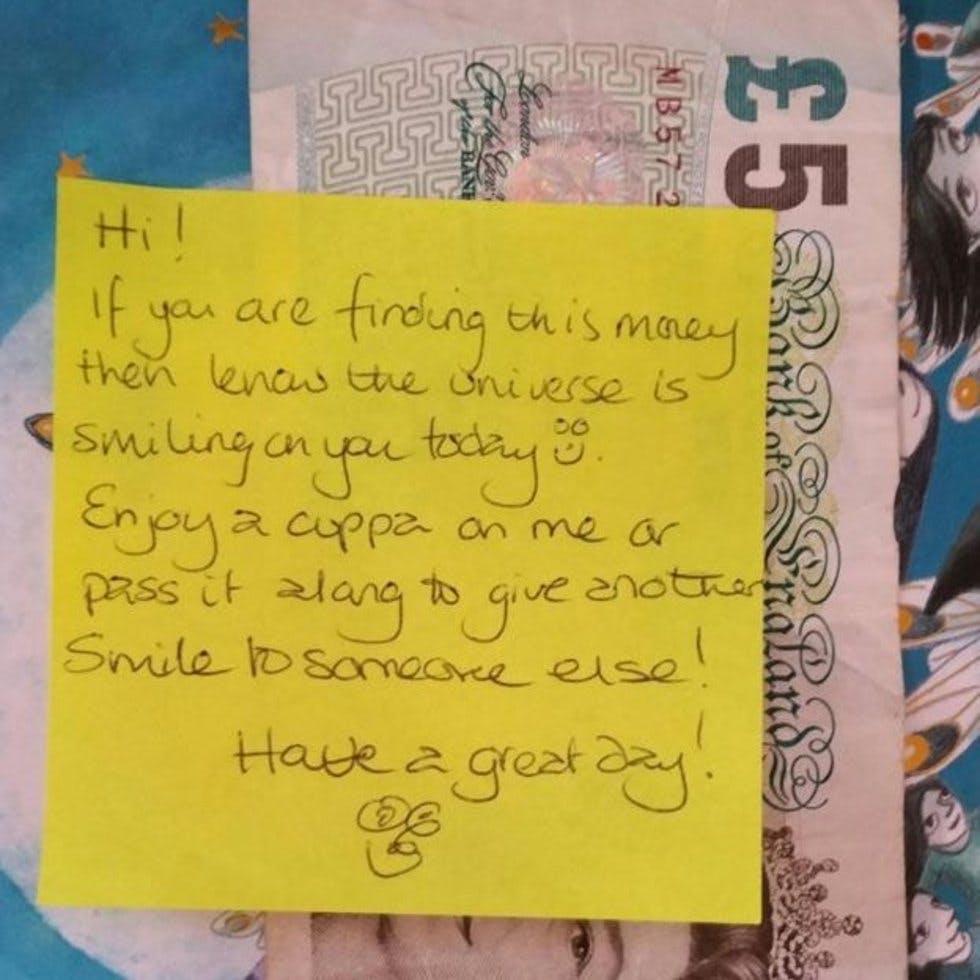 £5
MB572
London
For the Gov
of the BANK
Bank of England
Hi!
If you are finding this money
then know the universe is
smiling on you today
Enjoy a cuppa on me or
pass it along to give another
Smile to someone else!
Have a great day!